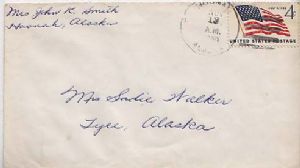 Mrs John R. Smith
Hoonah, Alaska
13
A.M.
4¢
UNITED STATES POSTAGE
Mrs Sadie Walker
Tyee, Alaska